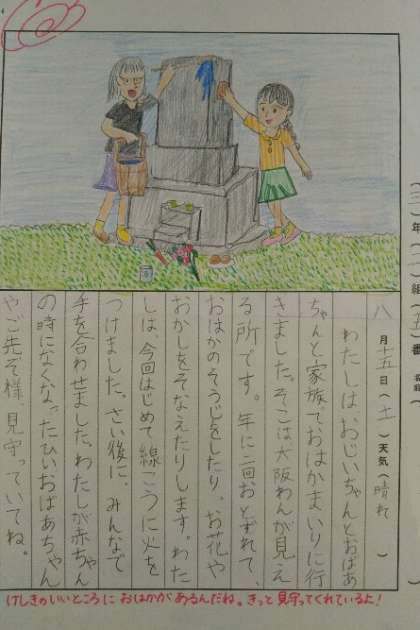 （三）年（二）組（五）番 名前（　　）
八月十五日（土）天気（晴れ）
わたしは、おじいちゃんとおばあ
ちゃんと家族で、おはかまいりに行
きました。そこは大阪わんが見え
る所です。年に二回おとずれて、
おはかのそうじをしたり、お花や
おかしをそなえたりします。わた
しは、今回はじめて線こうに火を
つけました。さい後に、みんなで
手を合わせました。わたしが赤ちゃん
の時になくなったひいおばあちゃん
やご先ぞ様、見守っていてね。
けしきのいいところに おはかが あるんだね。きっと 見守ってくれているよ！